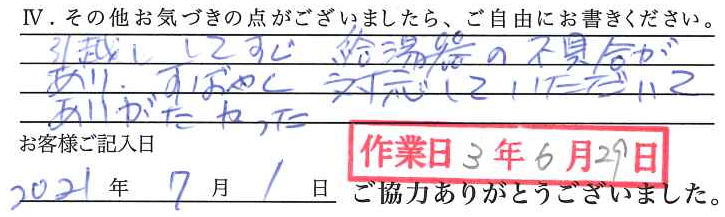 Ⅳ．その他お気づきの点がございましたら、ご自由にお書きください。
引越し してすぐ 給湯器の不具合が
あり、すばやく 対応していただいて
ありがたかった
お客様ご記入日
作業日 3年6月29日
2021年 7月 1日 ご協力ありがとうございました。